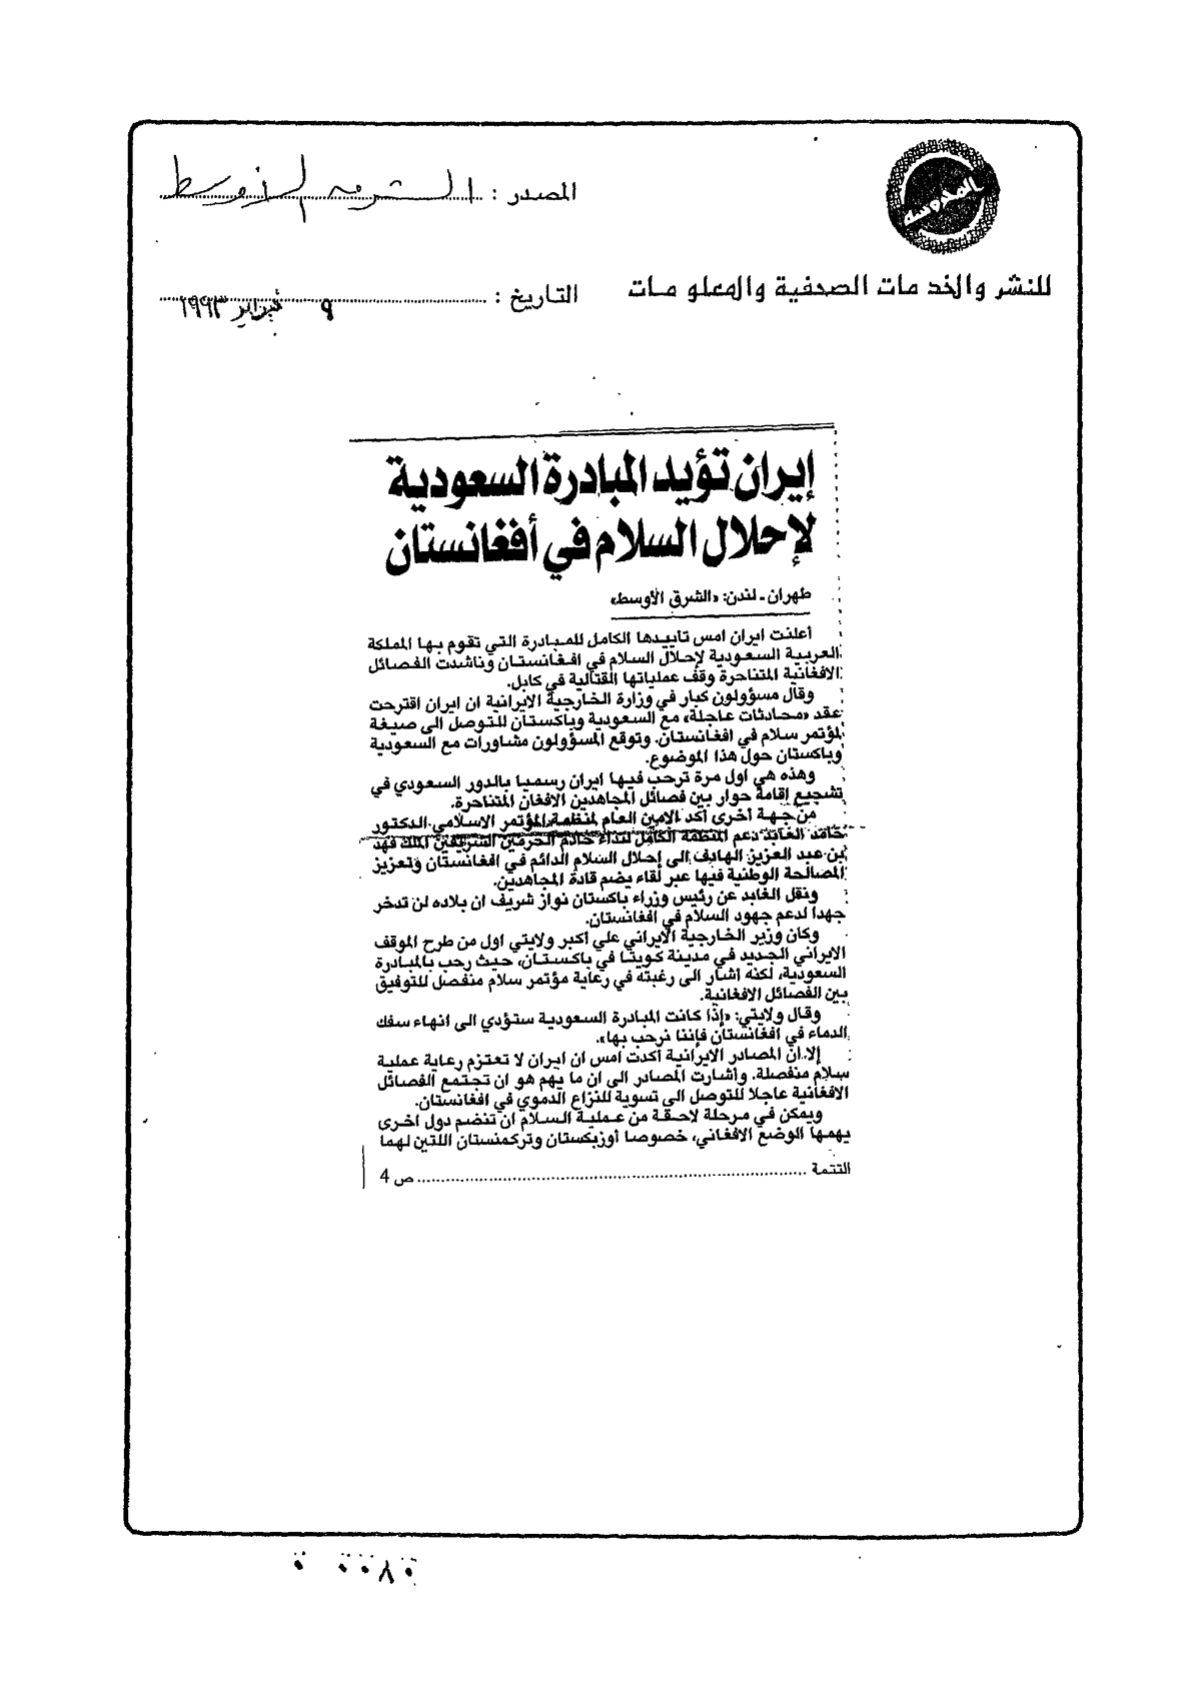 المحروسة
المصدر : الشرق الأوسط
للنشر والخدمات الصحفية والمعلومات
التاريخ : ٩ فبراير ١٩٩٣
إيران تؤيد المبادرة السعودية
لإحلال السلام في أفغانستان
طهران ـ لندن: «الشرق الأوسط»
أعلنت ايران امس تاييدها الكامل للمبادرة التي تقوم بها المملكة
العربية السعودية لإحلال السلام في افغانستان وناشدت الفصائل
الافغانية المتناحرة وقف عملياتها القتالية في كابل.
وقال مسؤولون كبار في وزارة الخارجية الايرانية ان ايران اقترحت
عقد «محادثات عاجلة» مع السعودية وباكستان للتوصل الى صيغة
لمؤتمر سلام في افغانستان. وتوقع المسؤولون مشاورات مع السعودية
وباكستان حول هذا الموضوع.
وهذه هي اول مرة ترحب فيها ايران رسميا بالدور السعودي في
تشجيع إقامة حوار بين فصائل المجاهدين الافغان المتناحرة.
من جهة أخرى أكد الامين العام لمنظمة المؤتمر الاسلامي الدكتور
حامد الغابد دعم المنظمة الكامل لنداء خادم الحرمين الشريفين الملك فهد
بن عبد العزيز الهادف الى إحلال السلام الدائم في افغانستان وتعزيز
المصالحة الوطنية فيها عبر لقاء يضم قادة المجاهدين.
ونقل الغابد عن رئيس وزراء باكستان نواز شريف ان بلاده لن تدخر
جهدا لدعم جهود السلام في افغانستان.
وكان وزير الخارجية الايراني علي أكبر ولايتي اول من طرح الموقف
الايراني الجديد في مدينة كويتا في باكستان، حيث رحب بالمبادرة
السعودية، لكنه أشار الى رغبته في رعاية مؤتمر سلام منفصل للتوفيق
بين الفصائل الافغانية.
وقال ولايتي: «إذا كانت المبادرة السعودية ستؤدي الى انهاء سفك
الدماء في افغانستان فإننا نرحب بها».
إلا ان المصادر الايرانية أكدت امس ان ايران لا تعتزم رعاية عملية
سلام منفصلة. وأشارت المصادر الى ان ما يهم هو ان تجتمع الفصائل
الافغانية عاجلا للتوصل الى تسوية للنزاع الدموي في افغانستان.
ويمكن في مرحلة لاحقة من عملية السلام ان تنضم دول اخرى
يهمها الوضع الافغاني، خصوصا أوزبكستان وتركمنستان اللتين لهما
التتمة ........ ص 4